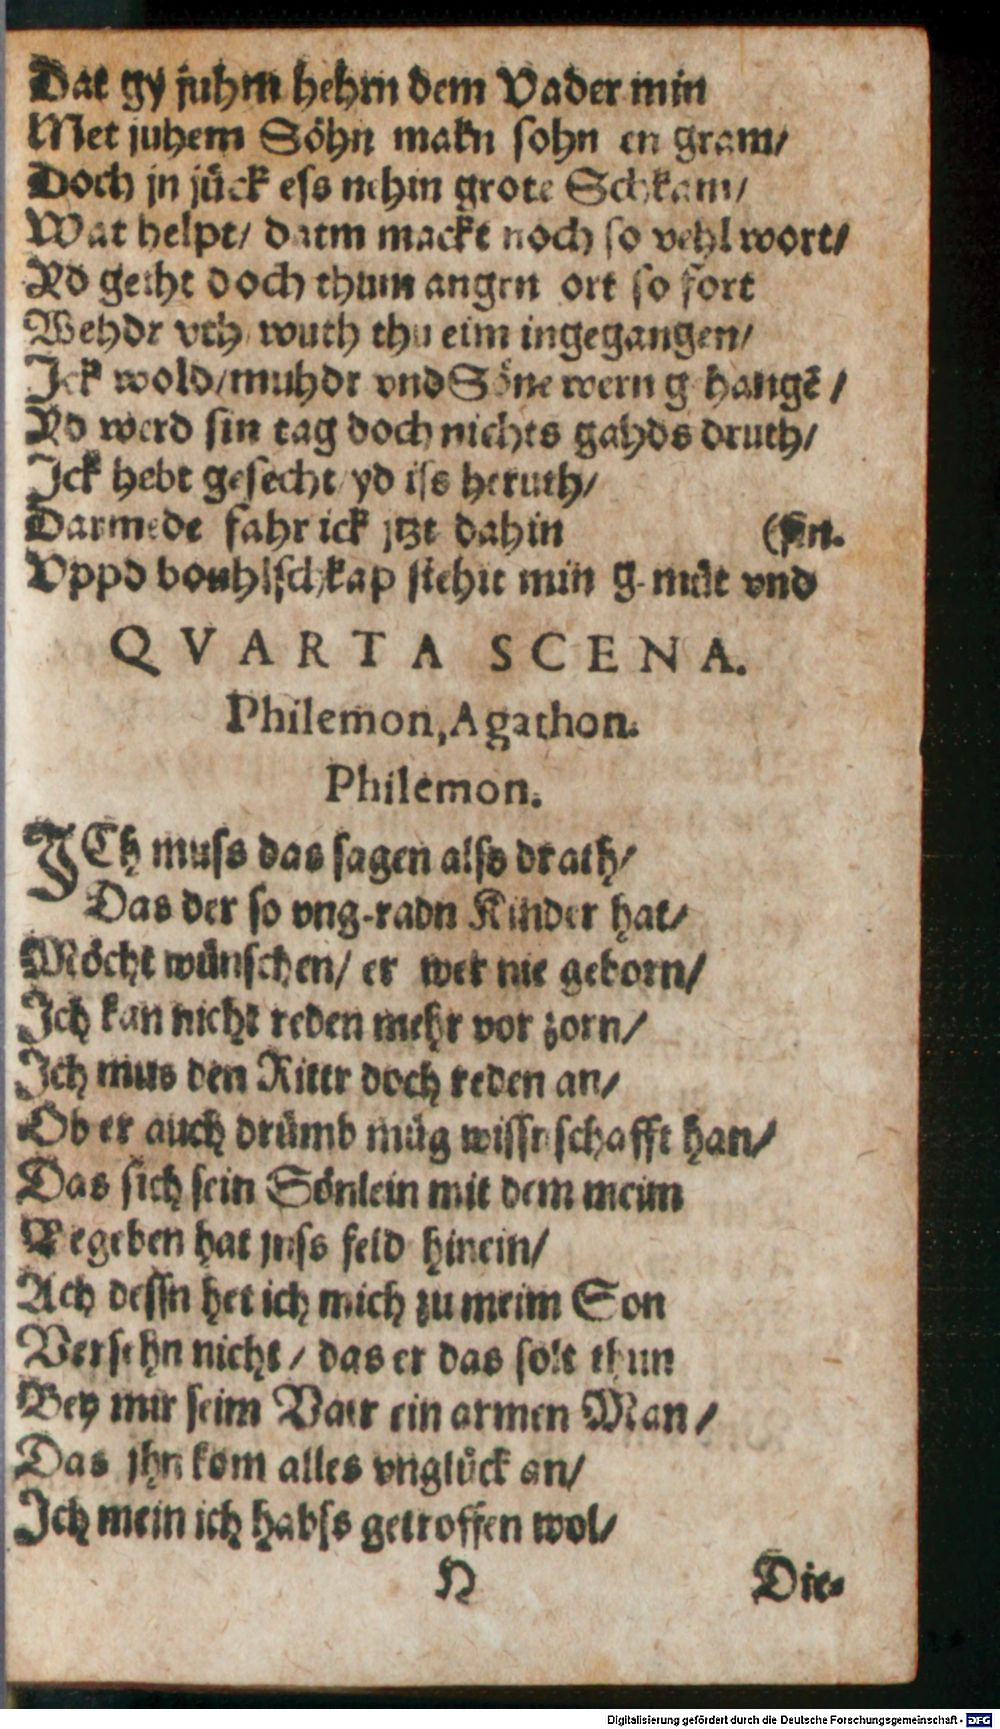 Dat gy juhm hehm dem Vader min
Met juhem Söhn makn sohn en gram/
Doch jn jück ess nehm grote Schkam/
Wat helpt/ datm mackt noch so vehl wort/
Yd geiht doch thum angrn ort so fort
Wehdr vth wuth thu eim ingegangen/
Ick wold/ muhdr vnd Söne wern g hangē/
Yd werd sin tag doch nichts gahds druth/
Ick hebt gesecht/ yd iss heruth/
Darmede fahr ick jtzt dahin
(sin.
Vppd bouhlschkap stehit min g-müt vnd
QVARTA SCENA.
Philemon, Agathon.
Philemon.
ICh muss das sagen also drath/
Das der so vng-radn Kinder hat/
Möcht wünschen/ er wer nie geborn/
Ich kan nicht reden mehr vor zorn/
Ich mus den Rittr doch reden an/
Ob er auch drümb müg wissnschafft han/
Das sich sein Sönlein mit dem meim
Begeben hat jnss feld hinein/
Ach dessn het ich mich zu meim Son
Versehn nicht/ das er das solt thun
Bey mir seim Vatr ein armen Man/
Das jhn kom alles vnglück an/
Ich mein ich habss getroffen wol/
N
Die-
Digitalisierung gefördert durch die Deutsche Forschungsgemeinschaft - DFG